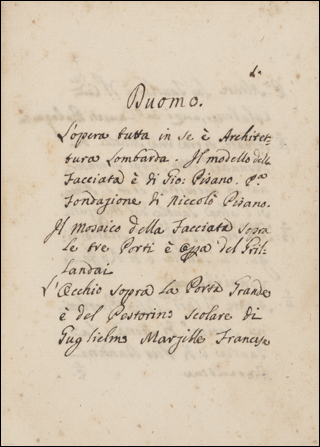 1.
Duomo.
L'opera tutta in se è Architet-
tura Lombarda. Il modello della
Facciata è di Gio: Pisano. Pª
Fondazione di Niccolò Pisano.
Il Mosaico della Facciata sopra
le tre Porti è opa del Gril-
landai
L'Occhio sopra la Porta Grande
è del Pastorino Scolare di
Guglielmo Marzille Francese